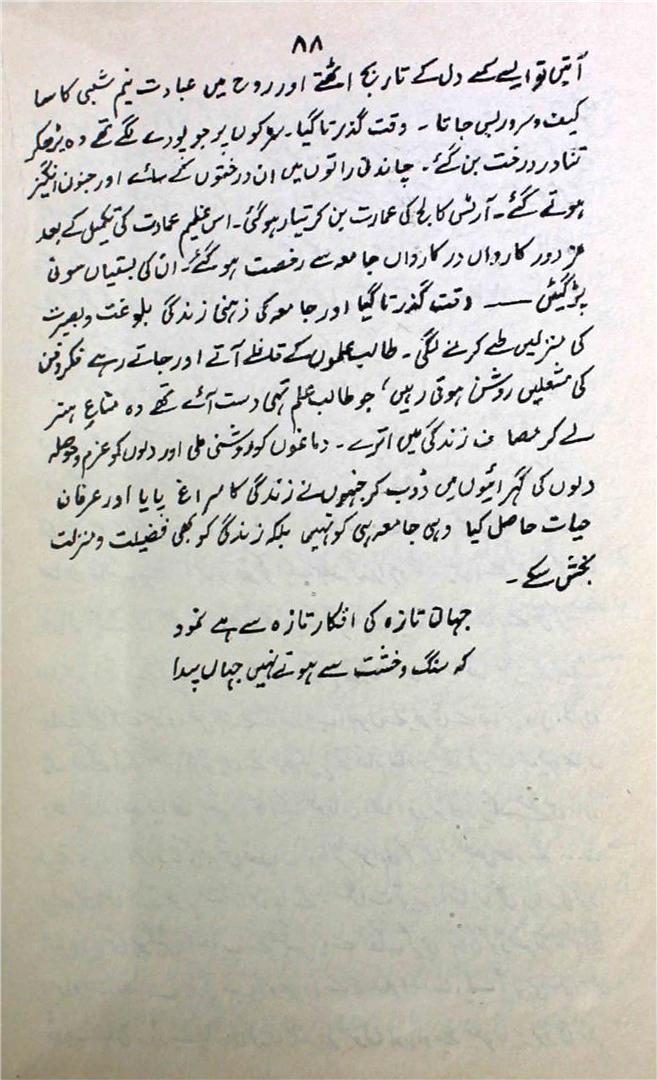 ۸۸
آتیں تو ایسے کہ دل کے تار بج اٹھتے اور روح میں عبادت نیم شبی کا سا
کیف و سرور بس جاتا ۔ وقت گذرتا گیا ۔ سڑکوں پر جو پودے لگے تھے وہ بڑھکر
تناور درخت بن گئے ۔ چاندنی راتوں میں ان درختوں کے سائے اور جنون انگیز
ہوتے گئے ۔ آرٹس کالج کی عمارت بن کر تیار ہوگئی ۔ اس عظیم عمارت کی تکمیل کے بعد
مزدور کارواں در کارواں جامعہ سے رخصت ہو گئے ۔ ان کی بستیاں سونی
پڑ گیئں —— وقت گذرتا گیا اور جامعہ کی ذہنی زندگی بلوغت و بصیرت
کی منزلیں طے کرنے لگی ۔ طالب علموں کے قافلے آتے اور جاتے رہے فکر و فن
کی مشعلیں روشن ہوتی رہیں ، جو طالب علم تہی دست آئے تھے وہ متاعِ ہنر
لے کر مصاف زندگی میں اترے ۔ دماغوں کو روشنی ملی اور دلوں کو عزم و حوصلہ
دلوں کی گہرائیوں میں ڈوب کر جنہوں نے زندگی کا سراغ پایا اور عرفان
حیات حاصل کیا وہی جامعہ ہی کو نہیں بلکہ زندگی کو بھی فضیلت و منزلت
بخش سکے ۔
جہان تازہ کی افکار تازہ سے ہے نمود
کہ سنگ و خشت سے ہوتے نہیں جہاں پیدا